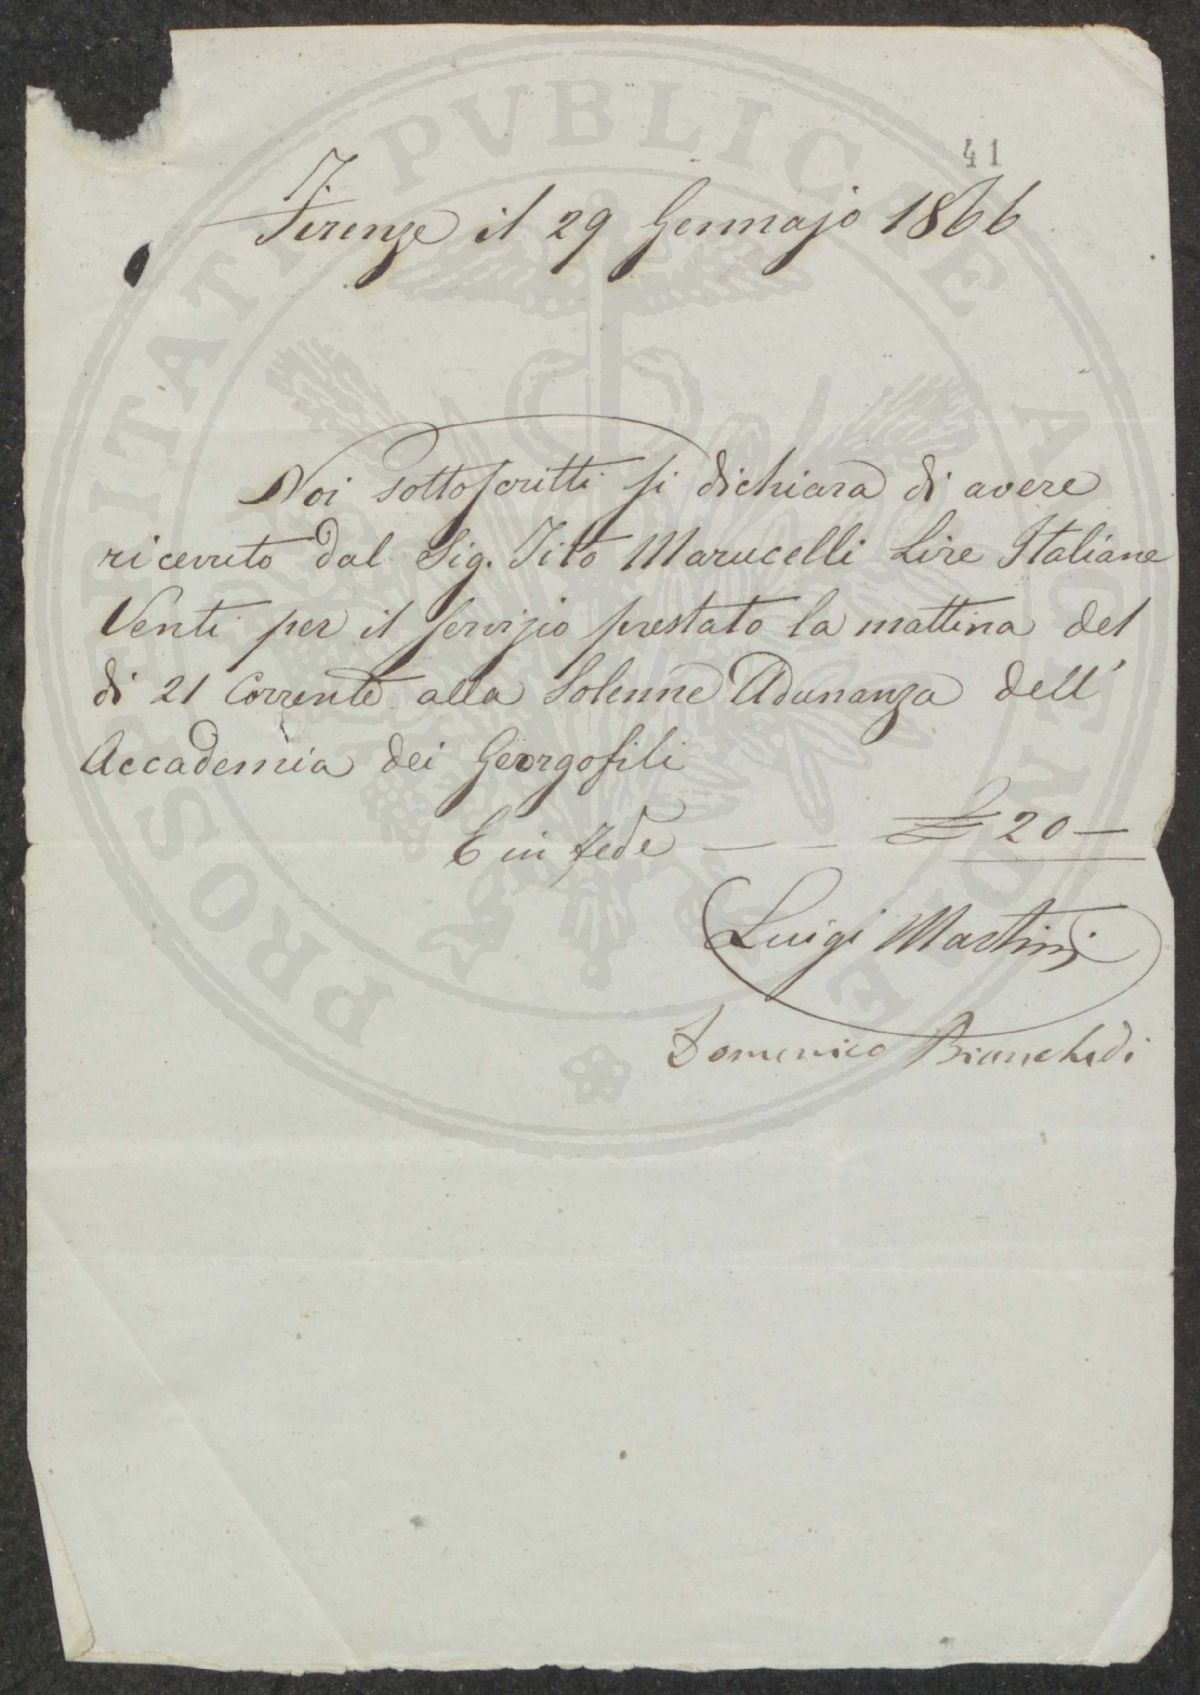 PROSPERITATI PVBLICAE AVGENDAE
41
Firenze il 29 Gennajo 1866
Noi sottoscritti si dichiara di avere
ricevuto dal Sig. Tito Marucelli Lire Italiane
Venti per il servizio prestato la mattina del
di 21 Corrente alla Solenne Adunanza dell'
Accademia dei Georgofili
E in fede — — £ 20 —
Luigi Martini
Domenico Bianchedi